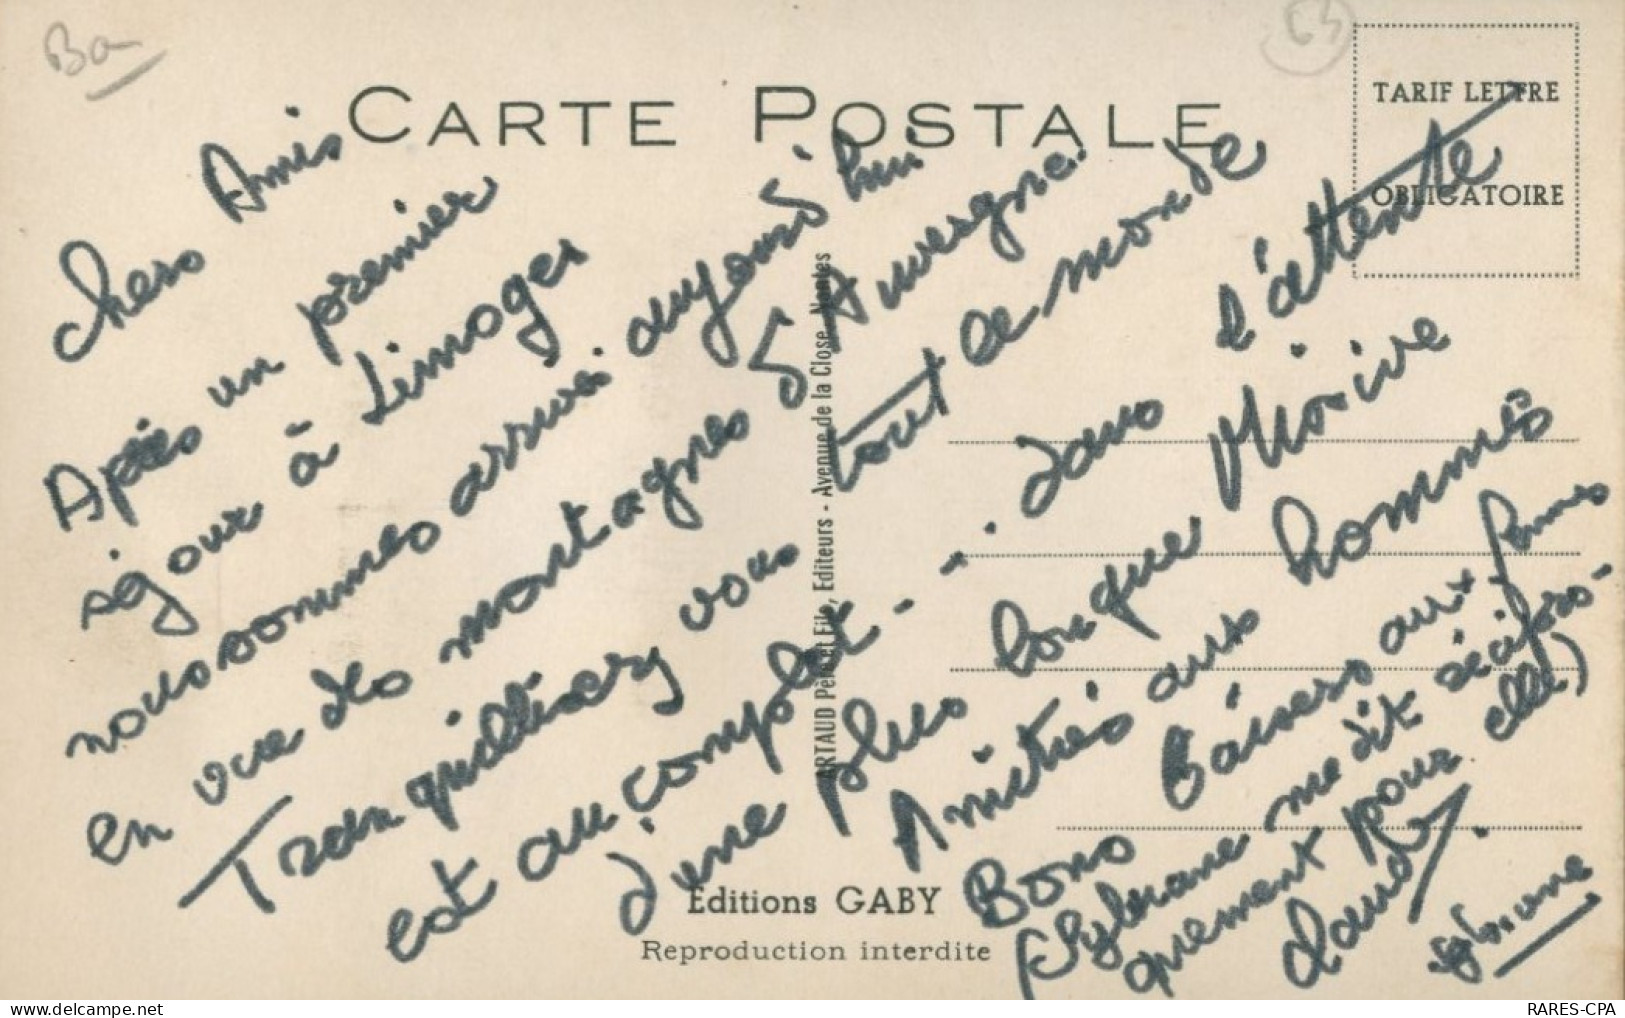 Ba
63
CARTE POSTALE
TARIF LETTRE
OBLIGATOIRE
Chers Amis
Après un premier
séjour à Limoges
nous sommes arrivé aujourd'hui
en vue des montagnes d'Auvergne.
Tranquillisez vous tout le monde
est au complet - - - . dans l'attente
d'une plus longue
Amitiés aux hommes
Bons baisers aux femmes
(Sylviane me dit réciproquement
pour elle)
Claudy.
Sylviane
ARTAUD Père et Fils, Editeurs - Avenue de la Close, Nantes
Editions GABY
Reproduction interdite
RARES-CPA